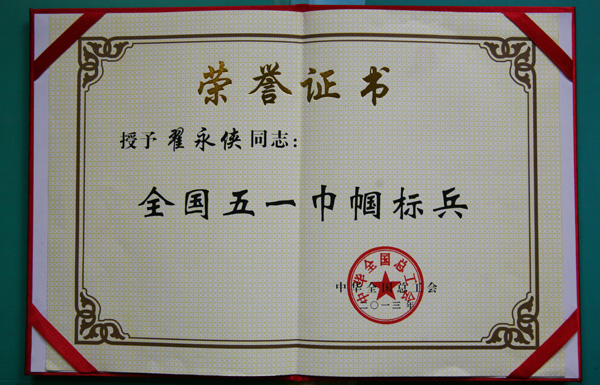 荣誉证书
授予翟永侠同志：
全国五一巾帼标兵
中华全国总工会
中华全国总工会
二〇一三年